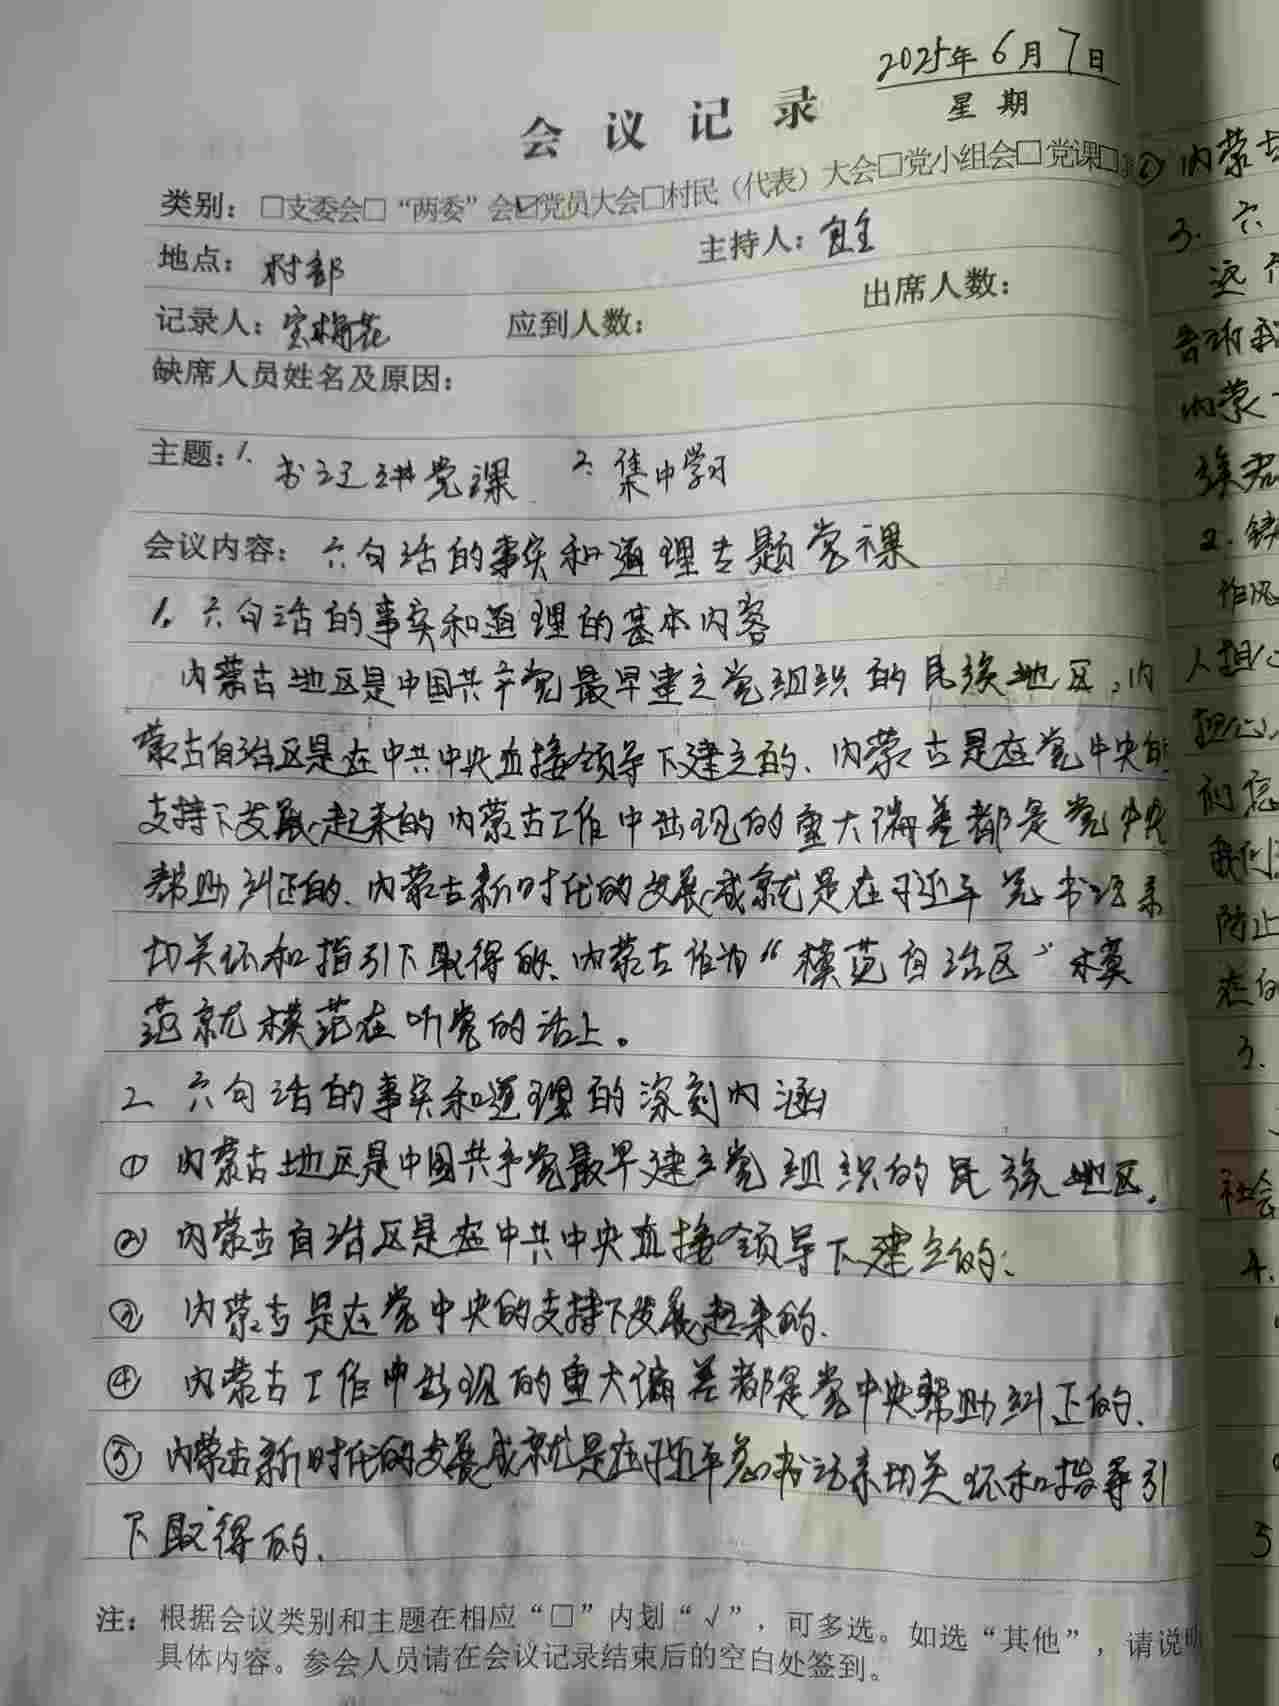 2025年6月7日
星期
会议记录
类别：□支委会□“两委”会☑党员大会□村民（代表）大会□党小组会□党课□
地点：村部
主持人：宝全
记录人：宝梅花 应到人数： 出席人数：
缺席人员姓名及原因：
主题：1. 书记讲党课 2. 集中学习
会议内容：六句话的事实和道理专题党课
1. 六句话的事实和道理的基本内容
内蒙古地区是中国共产党最早建立党组织的民族地区，内
蒙古自治区是在中共中央直接领导下建立的、内蒙古是在党中央的
支持下发展起来的内蒙古工作中出现的重大偏差都是党中央
帮助纠正的、内蒙古新时代的发展成就是在习近平总书记亲
切关怀和指引下取得的、内蒙古作为“模范自治区”模
范就模范在听党的话上。
2 六句话的事实和道理的深刻内涵
① 内蒙古地区是中国共产党最早建立党组织的民族地区。
② 内蒙古自治区是在中共中央直接领导下建立的；
③ 内蒙古是在党中央的支持下发展起来的、
④ 内蒙古工作中出现的重大偏差都是党中央帮助纠正的、
⑤ 内蒙古新时代的发展成就是在习近平总书记亲切关怀和指导引
下取得的、
注：根据会议类别和主题在相应“□”内划“√”，可多选。如选“其他”，请说明
具体内容。参会人员请在会议记录结束后的空白处签到。
⑥内蒙古
3. 六
这个
告诉我
内蒙
族君
2. 铸
作风
人担心
担心
们忘
我们
防止
态的
3.
社会
4.
5